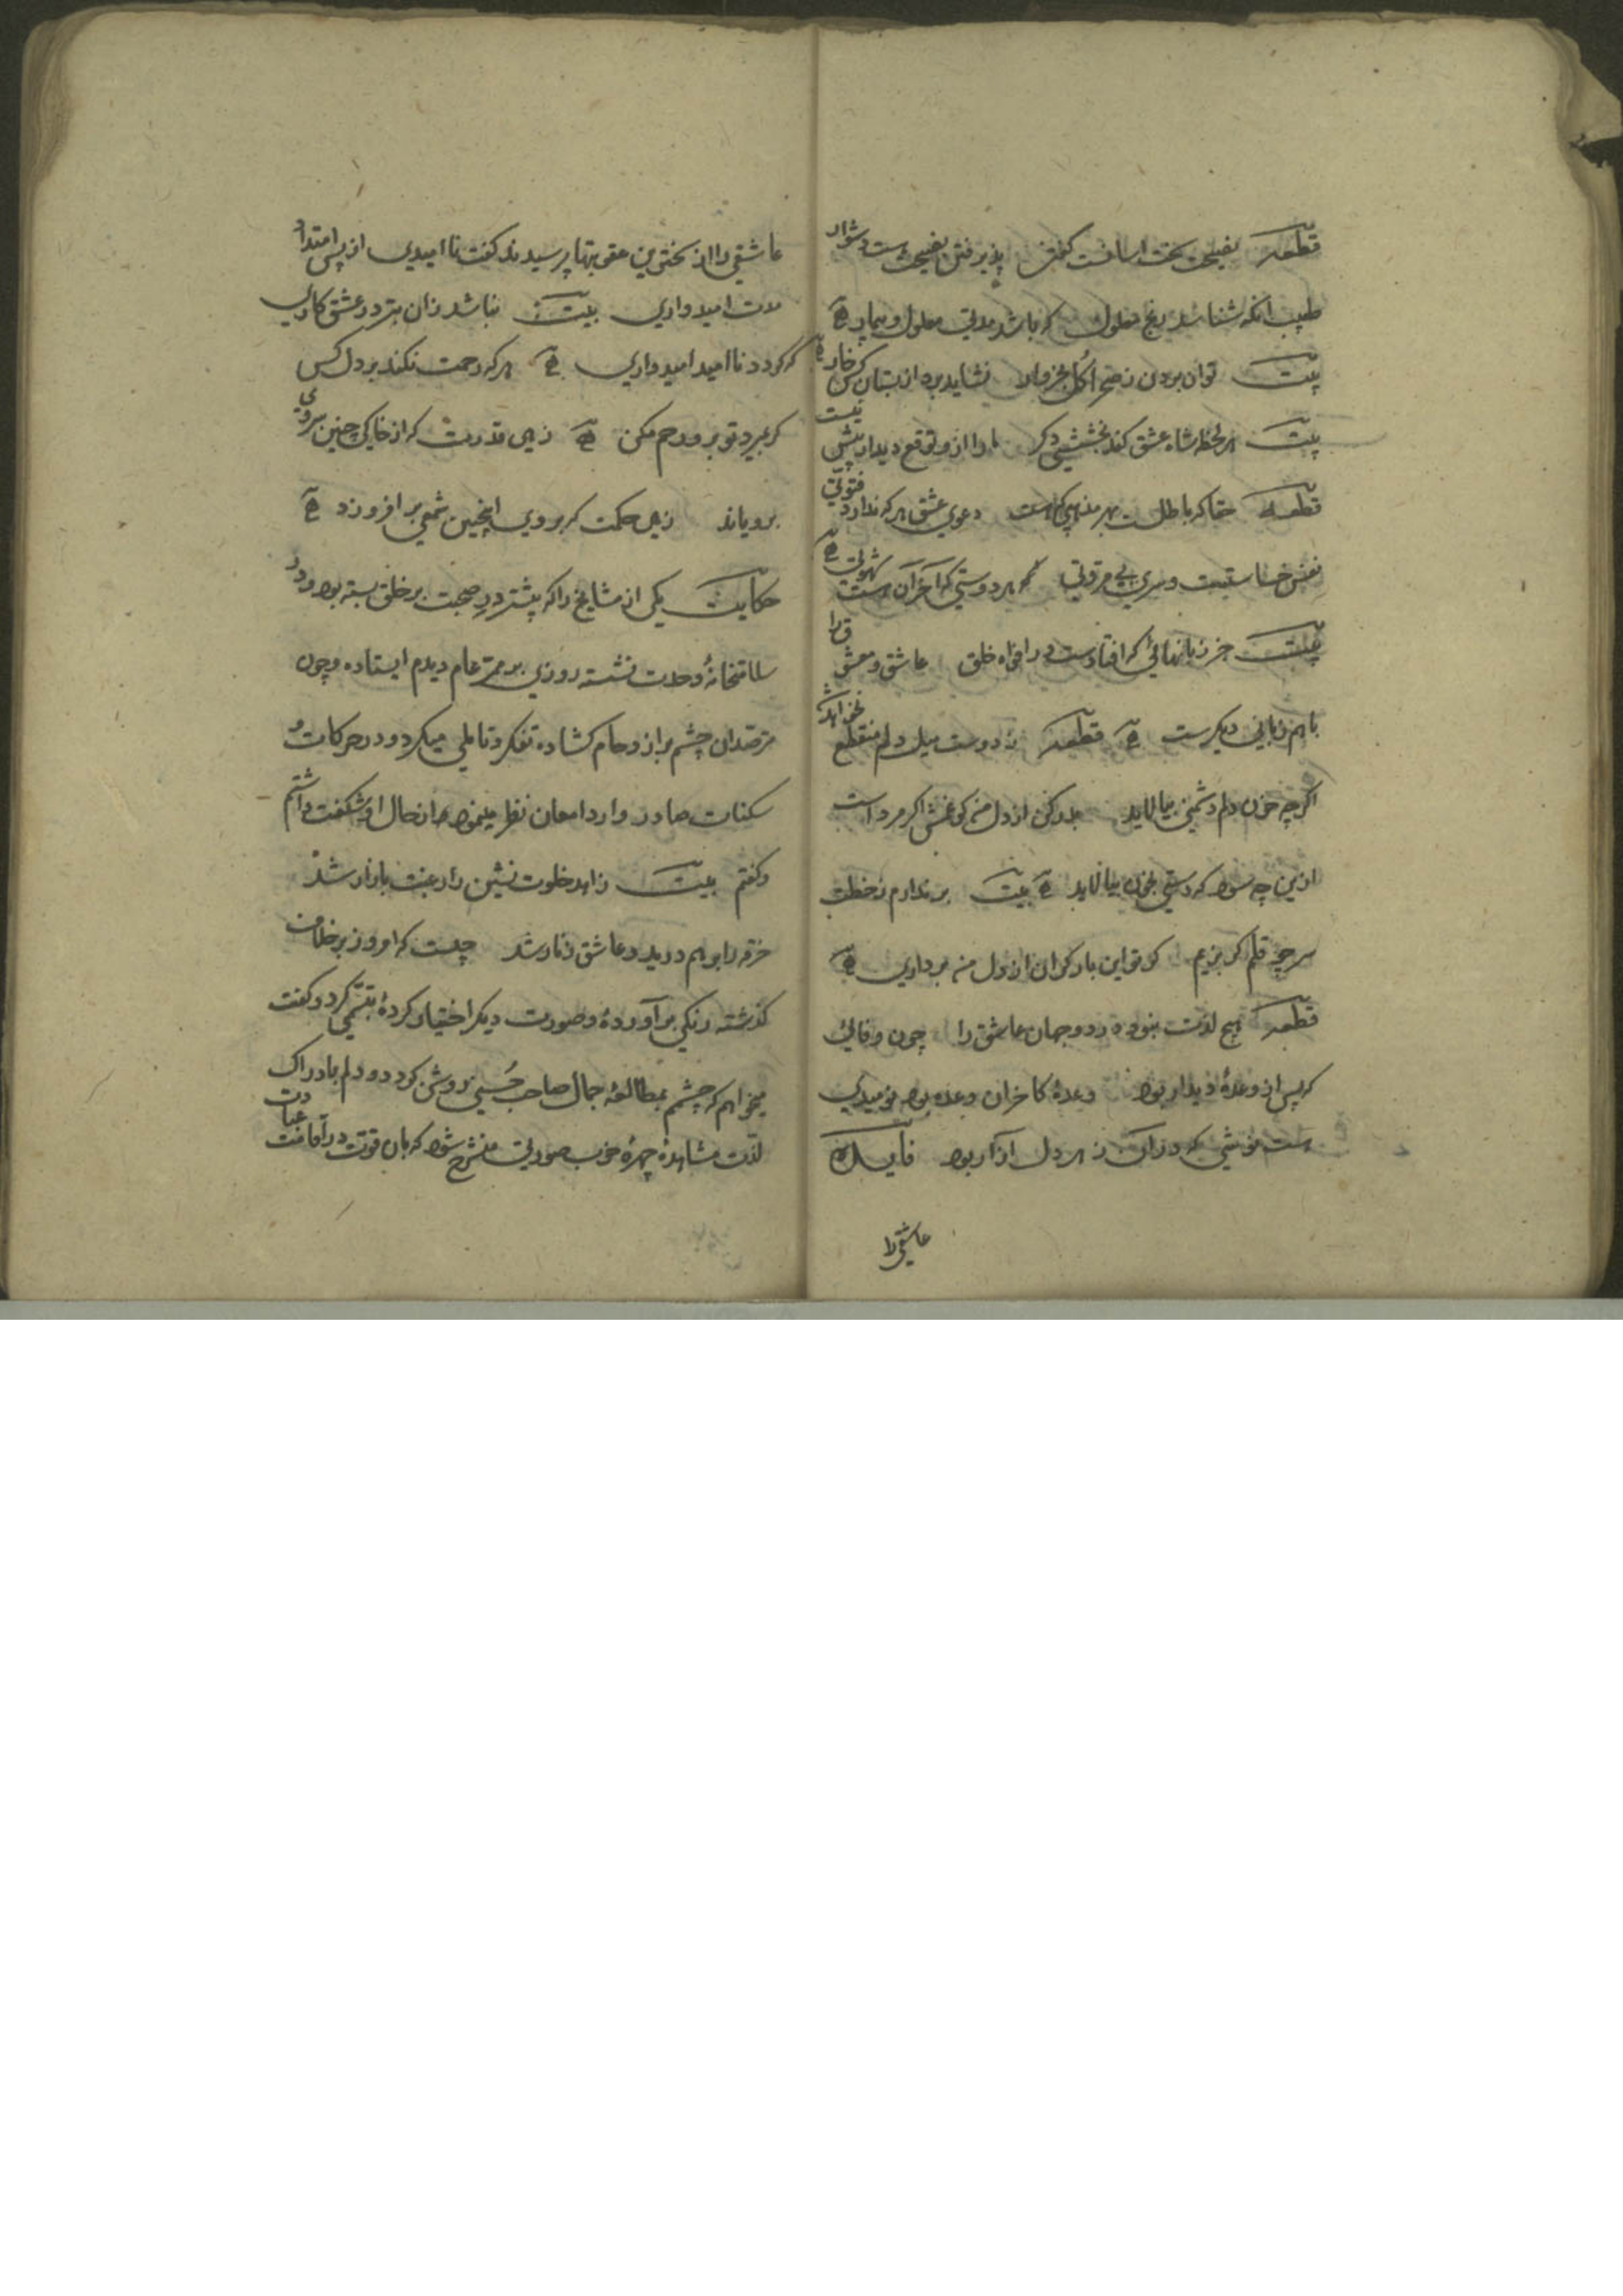 قطعه نصیحت سخت آسانست گفتن پذیرفتن نصیحت است دشوار
طبیب آنکه شناسد رنج معلول که باشد مدتی معلول و بیمار
بیت توان بردن ز صحرا گل بخروار نشاید برد از بستان کس خار
بیت هر لحظه شاه عشق کند بخششی دگر ما را ازو توقع دیدار بیش نیست
قطعه حقا که باطلست بهر مذهبی که هست دعوی عشق هر که ندارد فتوتی
نفس خساستست و سری بی مروتی هر دوستی که آخر آن هست شهوتی
بیت جز زبانهائی که افتادست در افواه خلق عاشق و معشوق را
با هم زبانی دیگرست قطعه ز دوست میل دلم منقطع نخواهد شد
اگرچه خون دلم دشمنی بیالاید بدر کن از دل من گو غمش اگر مرد است
ازین چه سود که دستی بخون بیالاید بیت بر ندارم ز خطت
سر چو قلم گر بزنیم گر تو این بار گران از دل من برداری
قطعه هیچ لذت نبود در دو جهان عاشق را چون وفائی
که پس از وعدهٔ دیدار بود وعدهٔ کاخر آن وعده بود نومیدی
هست نوشی که در آن زهر دل آزار بود فایده
عاشقی را
عاشقی را از سختترین عقوبتها پرسیدند گفت ناامیدی از پس امتداد
مدت امیدواری بیت نباشد زان بتر در عشق کاری
که گردد ناامید امیدواری هر که رحمت نکند بر دل کس
گر بمیرد تو برو رحم مکن زهی قدرت که از خاکی چنین سروی
برویاند زهی حکمت که بر وی اینچنین شمعی برافروزد
حکایت یکی از مشایخ را که پیشتر در صحبت بر خلق بسته بود و در
سلامتخانهٔ وحدت نشسته روزی بر ممر عام دیدم ایستاده و چون
مترصدان چشم بر ازدحام گشاده تفکر و تاملی میکرد و در حرکات
سکنات صادر و وارد امعان نظر مینمود از حال او شگفت داشتم
و گفتم بیت زاهد خلوت نشین را رغبت بازار شد
خرقه را بر هم درید و عاشق زنار شد چیست که امروز بر خلاف
گذشته رنگی بر آوردهٔ و صورت دیگر اختیار کردهٔ تبسمی کرد و گفت
میخواهم که چشم بمطالعهٔ جمال صاحب حسنی روشن گردد و دلم بادراک
لذت مشاهدهٔ چهرهٔ خوب صورتی منشرح شود که بان قوت در اقامت عبادت